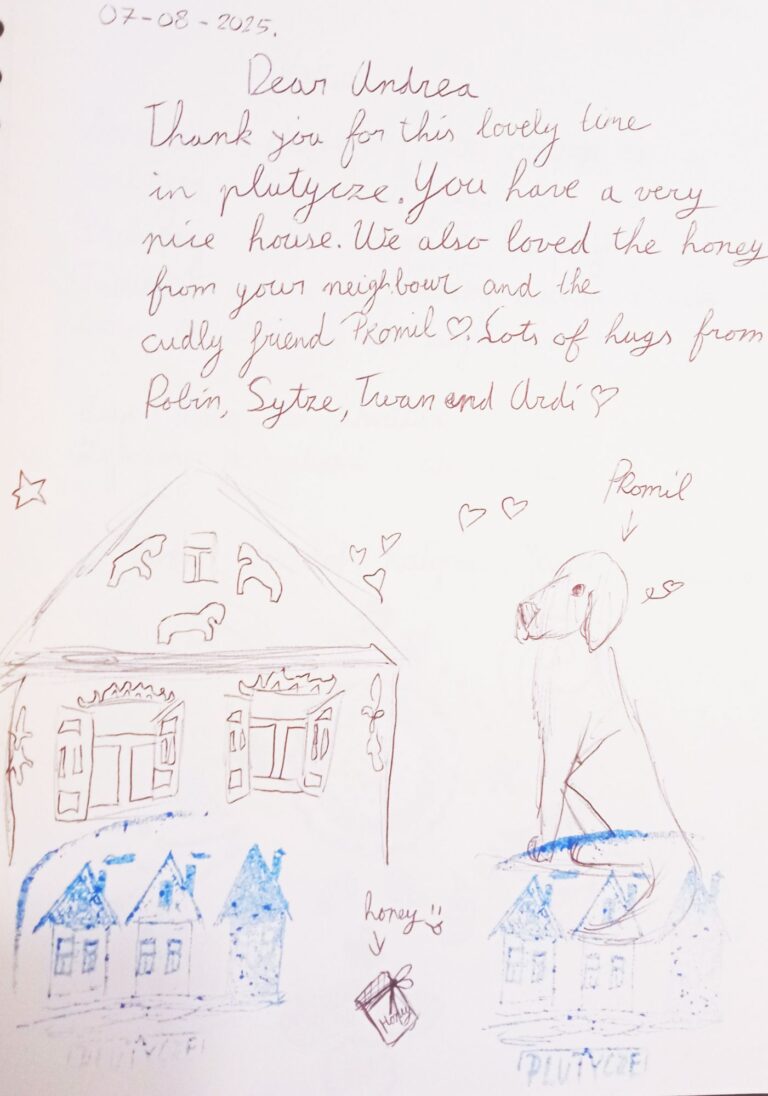 07-08-2025.
Dear Andrea
Thank you for this lovely time
in plutycze. You have a very
nice house. We also loved the honey
from your neighbour and the
cudly friend Promil ♡. Lots of hugs from
Robin, Sytze, Twan and Ardi ♡
Promil
honey
Honey
PLUTYCZE
PLUTYCZE